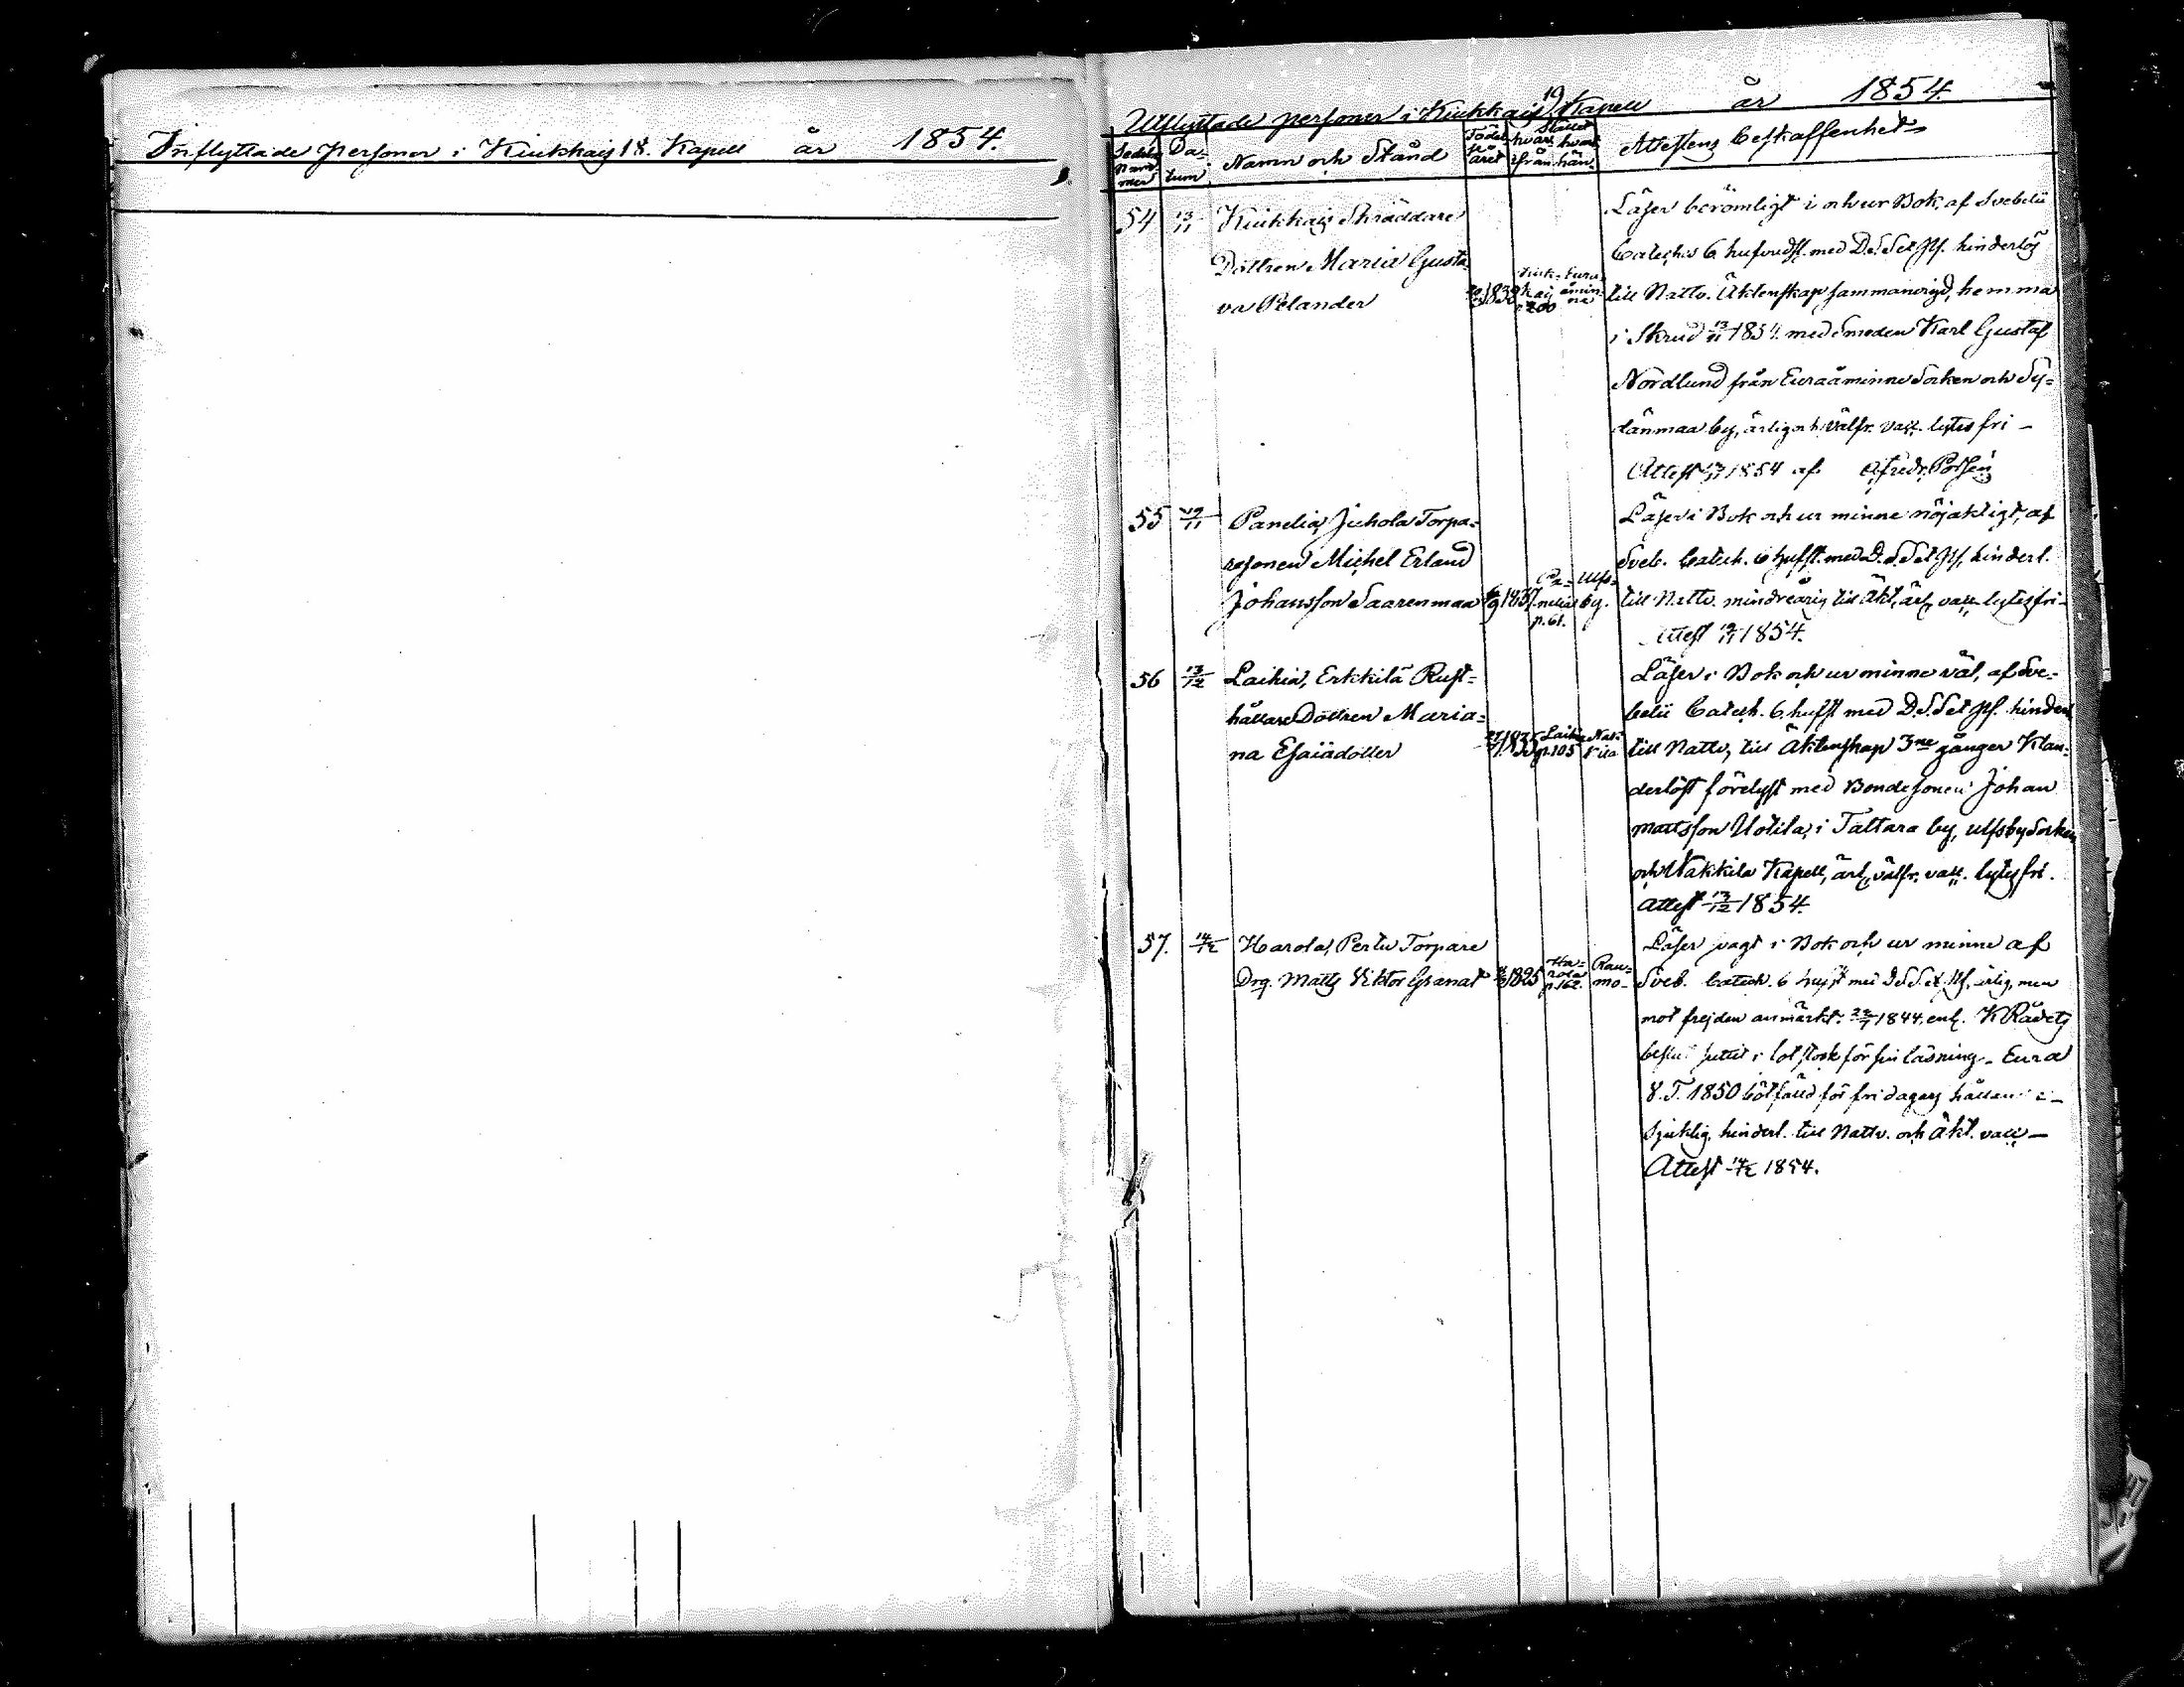 Inflyttade personer i Kiukkais 18. Kapell år 1854.
Utflyttade personer i Kiukkais 19. Kapell år 1854.
Sedels Nummer
Datum
Namn och Stånd
Födelseåret
Stället hvarifrån hvarthän
Attestens beskaffenhet
54 13/11 Kiukkais Skräddare
Dottren Maria Gusta
va Pelander 1838 Kiukkais p. 200 Euraåminne
Läser berömligt i och ur Bok, af Svebelii
Cateches 6 hufvudst. med D.S.S et Jtf. hinderlös
till Nattv. Äktenskap sammanvigd, hemma
i Skrud 13/11 1854. med Smeden Karl Gustaf
Nordlund från Euraåminne Socken och Sy=
dänmaa by, ärlig och välfr. vacc. lytesfri -
Attest 13/11 1854 af
55 19/11 Panelia, Juhola Torpa=
resonen Michel Erland
Johansson Saarenmaa 1837 Panelia p. 61. Ulfsby.
Läser i Bok och ur minne nöjaktigt, af
Sveb. Catech. 6 hufst. med D.S.S et Jtf, hinderl.
till Nattv. minderårig till Äkt, ärl, vacc. lytesfri-
Attest 19/11 1854.
56 13/12 Laihia, Erkkilä Rust=
hållare Dottren Maria=
na Esaiädotter 1835 Laihia p. 105 Nakkila
Läser i Bok och ur minne väl, af Sve=
belii Catech. 6 hufst med D.S.S et Jtf. hinderl
till Nattv, till Äktenskap 3ne gånger Klan=
derlöst förelyst med Bondesonen Johan
Mattsson Uotila, i Tattara by, Ulfsby Socken
och Nakkila Kapell, ärl, välfr. vacc. lytesfri.
Attest 13/12 1854.
57. 14/12 Harola, Perttu Torpare
Drg. Matts Viktor Granat Harola p. 162. Raumo-
Läser svagt i Bok och ur minne af
Sveb. Catech. 6 hufst med D.S.S. et Jtf, ärlig, men
mot frejden anmärkt: 1844, enl. K Rådets
beslut suttit i fotstock för sin läsning - Eura
V.T. 1850 bötfälld för fridagars hållan
Sjuklig, hinderl. till Nattv. och Äkt. vacc -
Attest 14/12 1854.